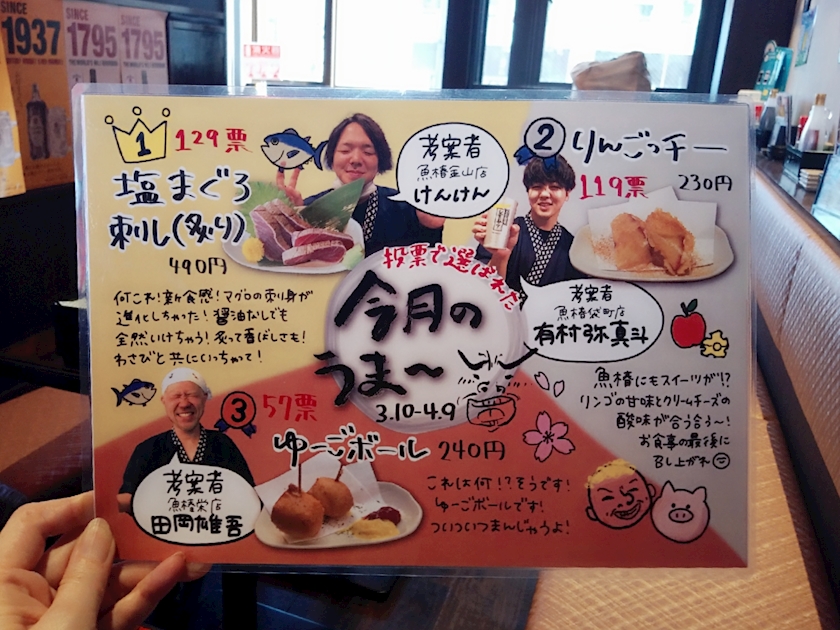 SINCE
1937
SINCE
1795
SINCE
1795
1
129票
塩まぐろ
刺し(炙り)
490円
何これ!新食感!マグロの刺身が
進化しちゃった!醤油なしでも
全然いけちゃう!炙って香ばしさも!
わさびと共にいっちゃって!
考案者
魚椿金山店
けんけん
2
りんごっチー
119票
230円
考案者
魚椿袋町店
有村弥真斗
魚椿にもスイーツが!?
リンゴの甘味とクリームチーズの
酸味が合う合う〜!
お食事の最後に
召し上がれ
投票で選ばれた
今月の
うま〜
3.10-4.9
3
57票
ゆーごボール
240円
考案者
魚椿栄店
田岡雄吾
これは何!?そうです!
ゆーごボールです!
ついついつまんじゃうよ!